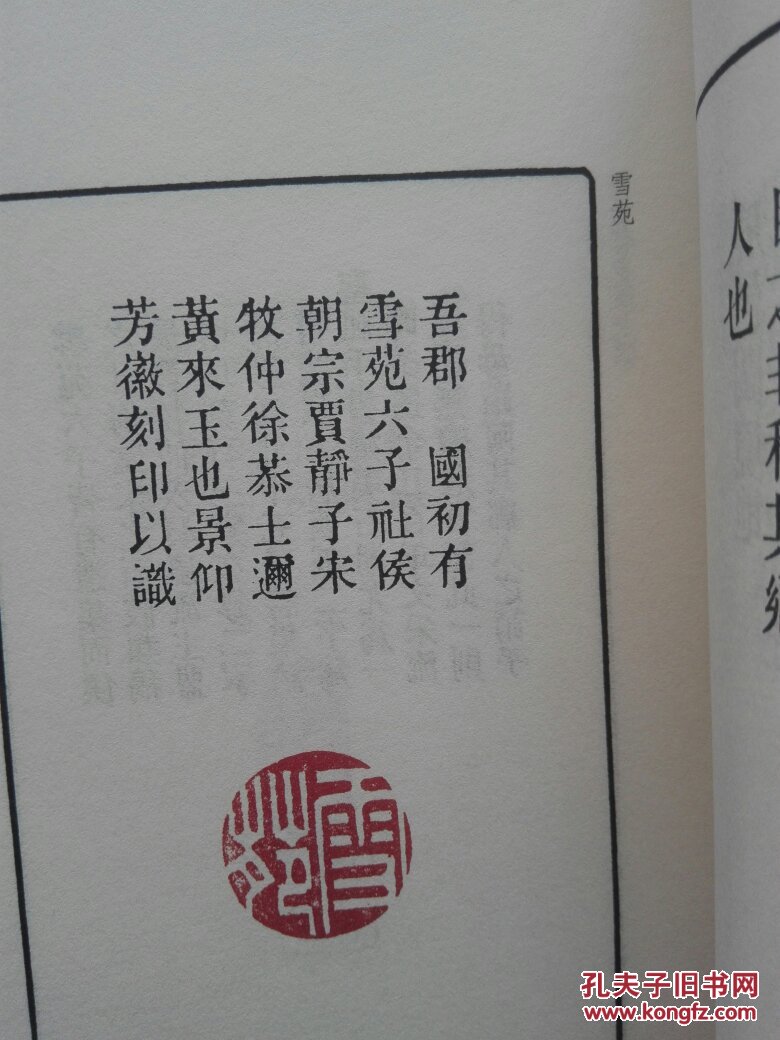 人也
雪苑
吾郡　國初有
雪苑六子社侯
朝宗賈靜子宋
牧仲徐恭士邇
黃來玉也景仰
芳徽刻印以識
雪苑
孔夫子旧书网
www.kongfz.com